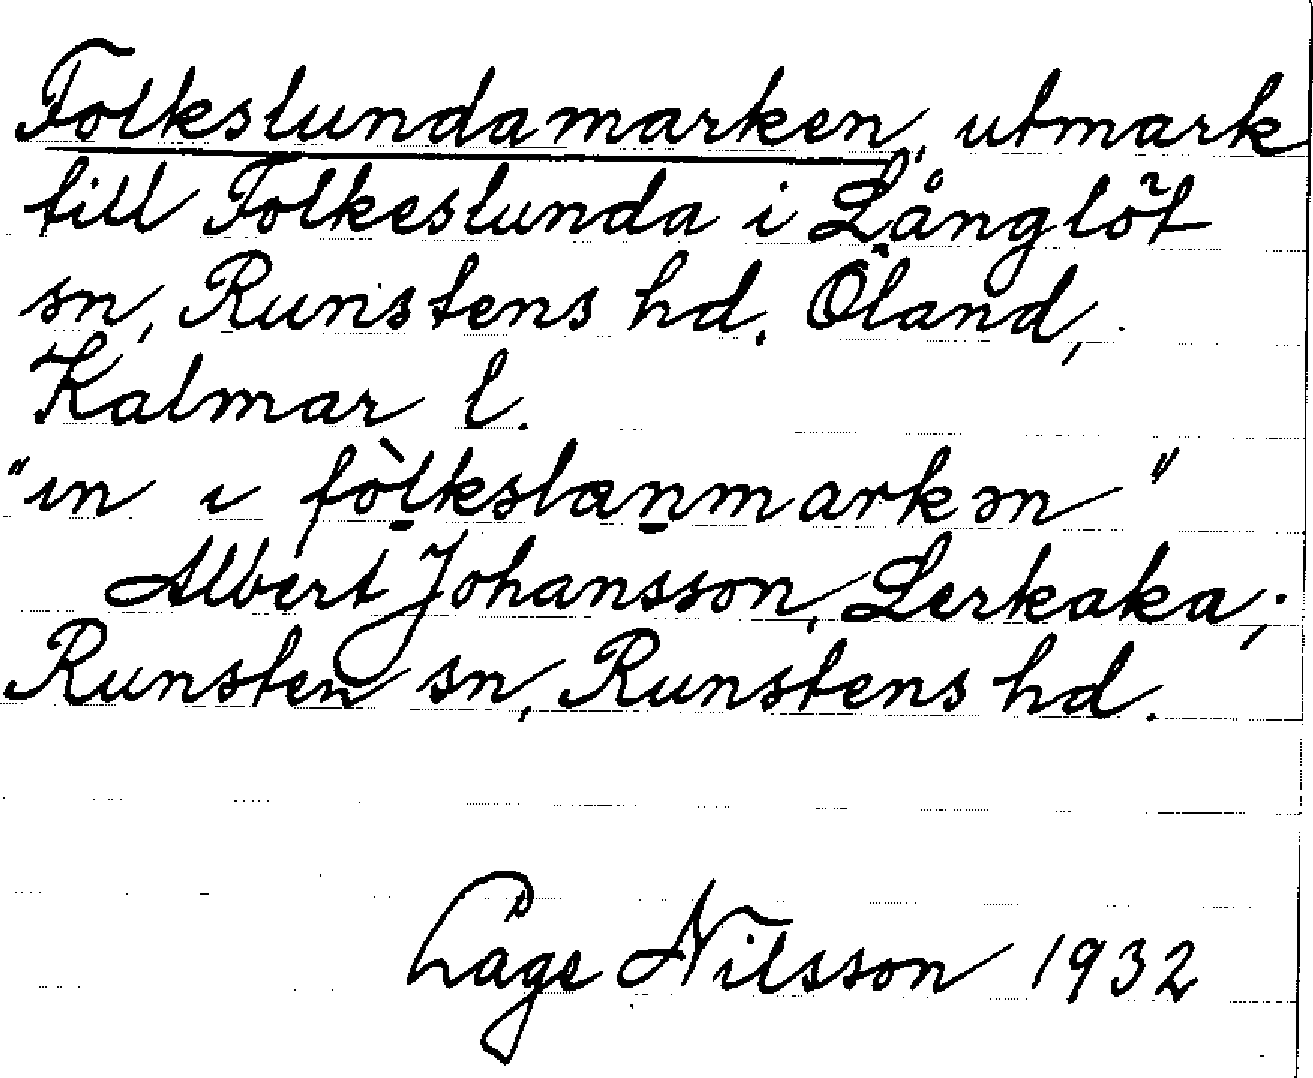 Folkslundamarken, utmark
till Folkeslunda i Långlöt
sn, Runstens hd. Öland,
Kalmar l.
"ın ı fò̠lkslan̠markən"
Albert Johansson, Lerkaka,
Runsten sn, Runstens hd.
Låge Nilsson 1932